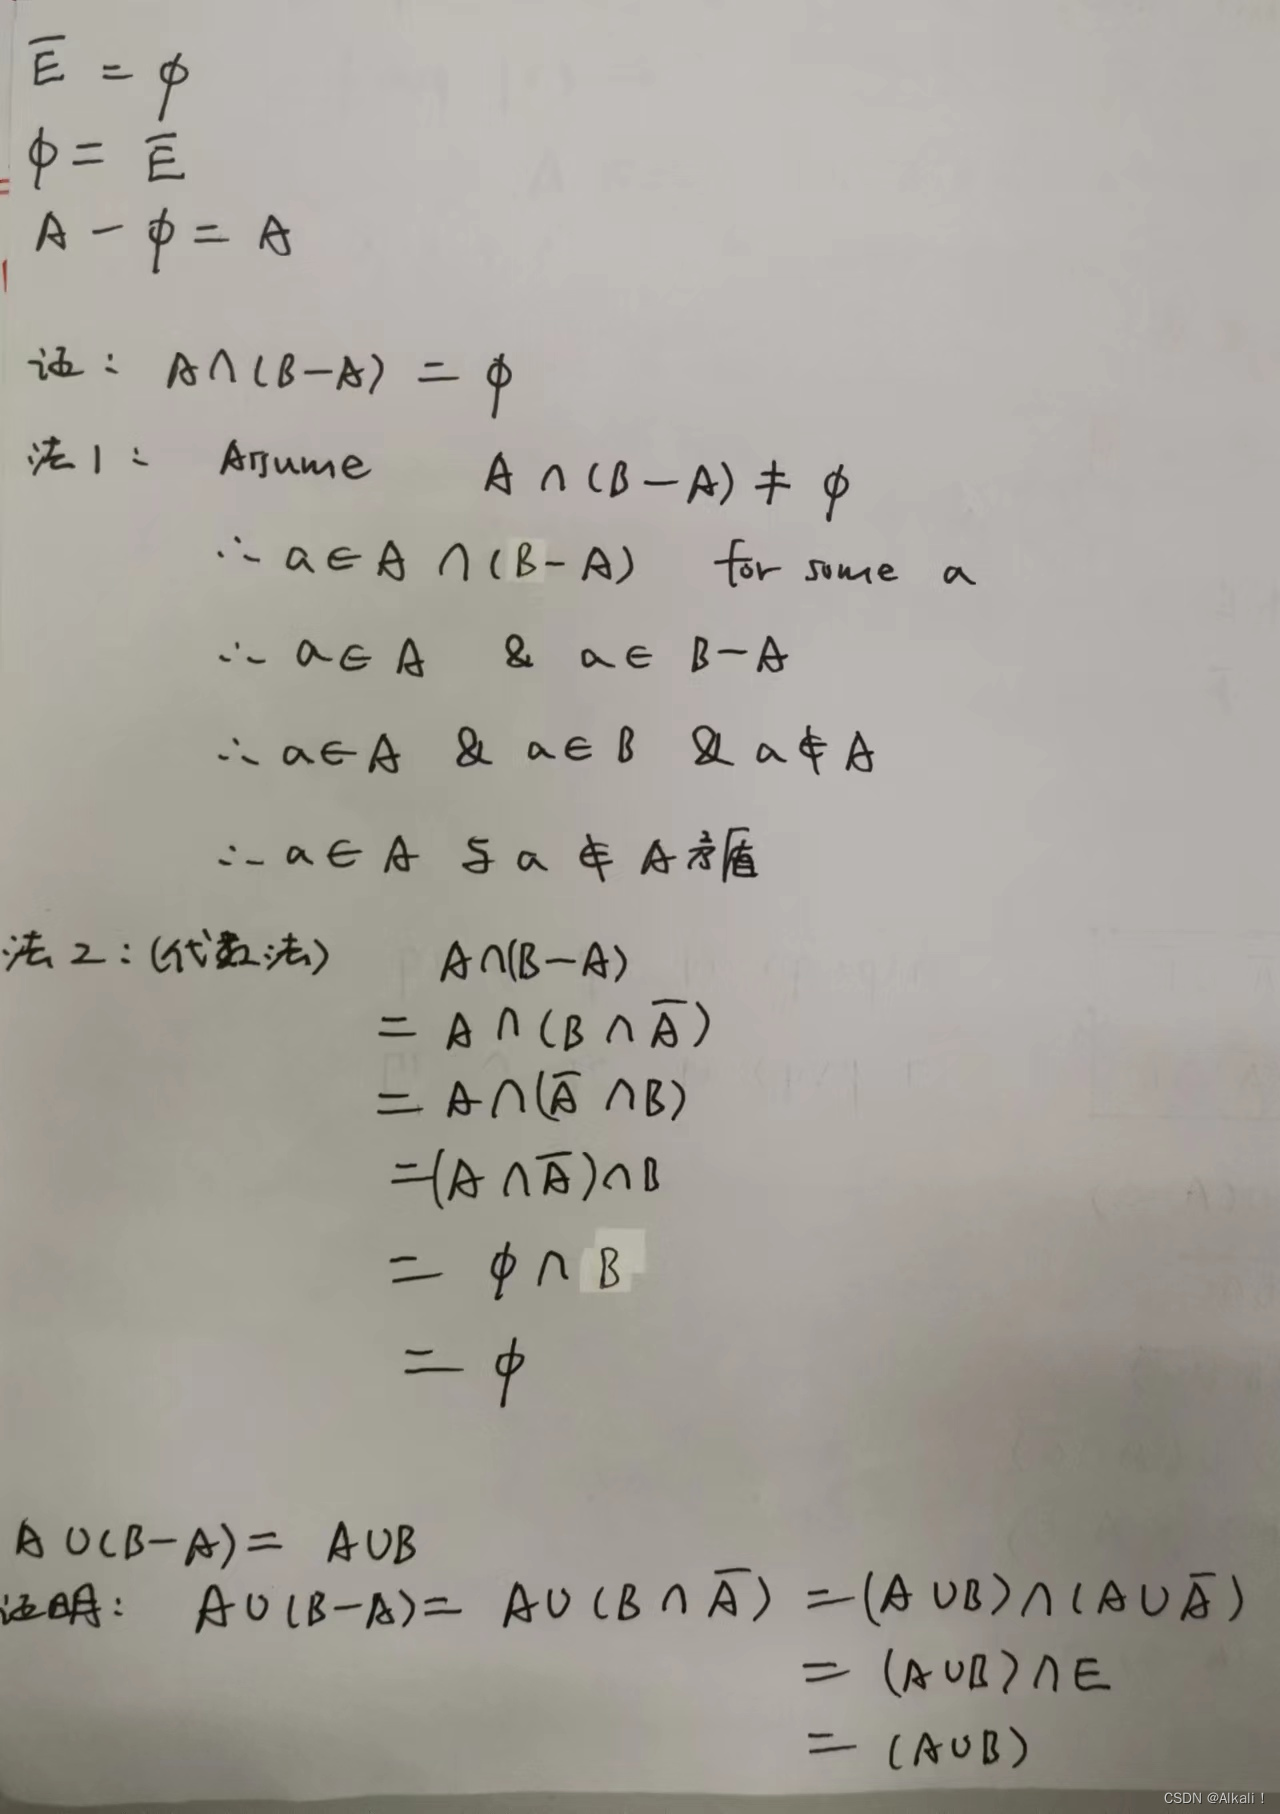 E̅ = ϕ
ϕ = E̅
A - ϕ = A
证: A∩(B-A) = ϕ
法1: Assume A∩(B-A) ≠ ϕ
∴ a∈A∩(B-A) for some a
∴ a∈A & a∈B-A
∴ a∈A & a∈B & a∉A
∴ a∈A 与 a∉A 矛盾
法2:(代数法) A∩(B-A)
= A∩(B∩A̅)
= A∩(A̅∩B)
=(A∩A̅)∩B
= ϕ∩B
= ϕ
A∪(B-A)= A∪B
证明: A∪(B-A)= A∪(B∩A̅) =(A∪B)∩(A∪A̅)
= (A∪B)∩E
= (A∪B)
CSDN @Alkali！